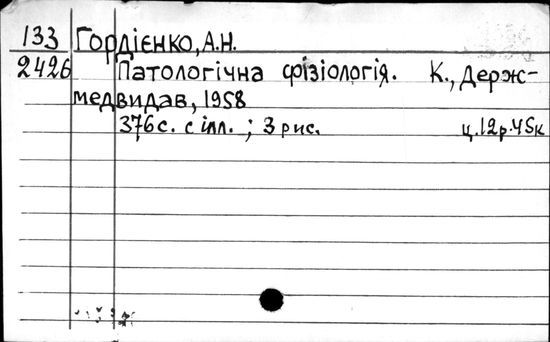 133 Гордієнко, А.Н.
2426 Патологічна фізіологія. К., Держ-
медвидав, 1958
376с. с ілл. ; 3 рис. ц.12р.45к